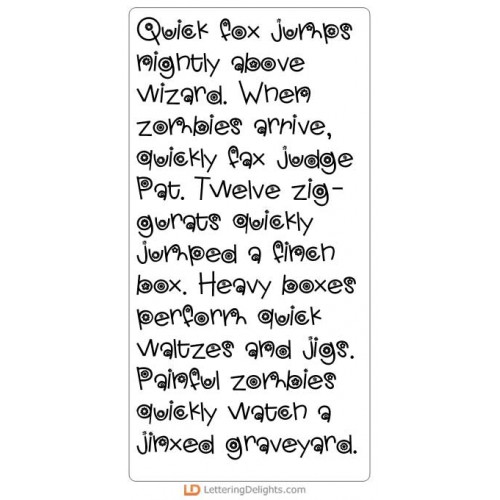 Quick fox jumps
nightly above
wizard. When
zombies arrive,
quickly fax judge
Pat. Twelve zig-
gurats quickly
jumped a finch
box. Heavy boxes
perform quick
waltzes and jigs.
Painful zombies
quickly watch a
jinxed graveyard.
LD LetteringDelights.com